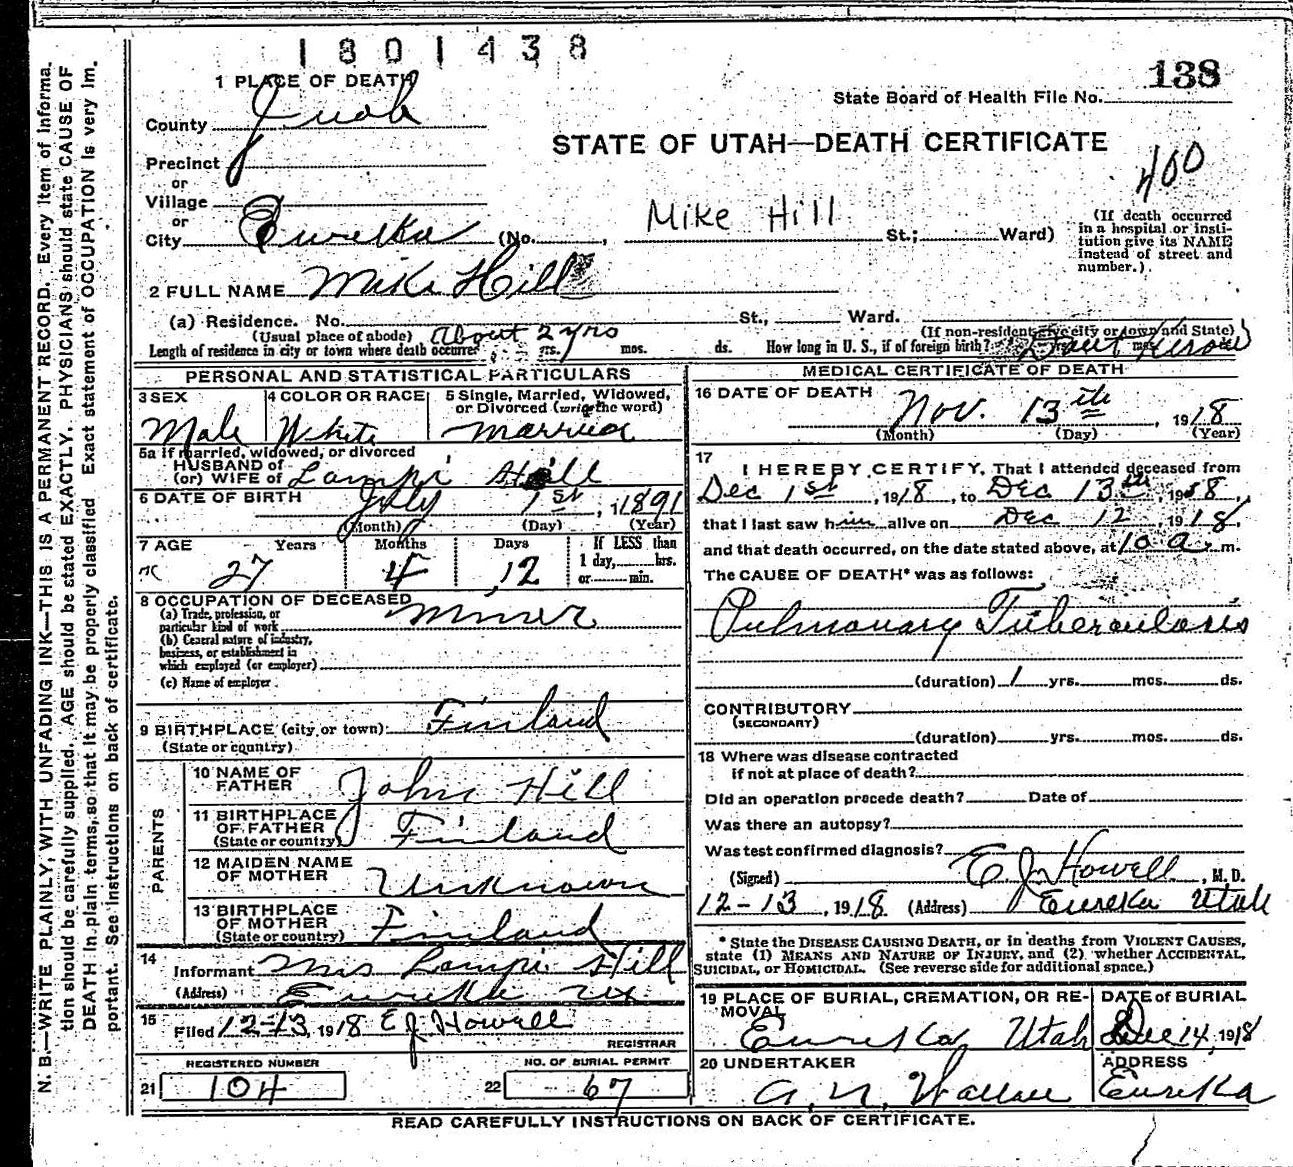 1801438
138
State Board of Health File No.
1 PLACE OF DEATH
County Juab
STATE OF UTAH—DEATH CERTIFICATE
400
Precinct
or
Village
or
City Eureka (No. , Mike Hill St.; Ward)
(If death occurred in a hospital or institution give its NAME instead of street and number.)
2 FULL NAME Mike Hill
(a) Residence. No. St., Ward.
(Usual place of abode) (If non-resident give city or town and State)
Length of residence in city or town where death occurred About 2 yrs yrs. mos. ds. How long in U. S., if of foreign birth? Dont Know
PERSONAL AND STATISTICAL PARTICULARS
3 SEX Male
4 COLOR OR RACE White
5 Single, Married, Widowed, or Divorced (write the word) Married
5a If married, widowed, or divorced
HUSBAND of
(or) WIFE of Lampi Hill
6 DATE OF BIRTH July 1st, 1891
(Month) (Day) (Year)
7 AGE Years Months Days If LESS than
27 4 12 1 day, hrs.
or min.
8 OCCUPATION OF DECEASED
(a) Trade, profession, or particular kind of work Miner
(b) General nature of industry, business, or establishment in which employed (or employer)
(c) Name of employer
9 BIRTHPLACE (city or town) Finland
(State or country)
PARENTS
10 NAME OF FATHER John Hill
11 BIRTHPLACE OF FATHER Finland
(State or country)
12 MAIDEN NAME OF MOTHER Unknown
13 BIRTHPLACE OF MOTHER Finland
(State or country)
14
Informant Mrs Lampi Hill
(Address) Eureka
15
Filed 12-13 1918 E J Howell
REGISTRAR
REGISTERED NUMBER
21 104
NO. OF BURIAL PERMIT
22 67
MEDICAL CERTIFICATE OF DEATH
16 DATE OF DEATH
Nov. 13th, 1918
(Month) (Day) (Year)
17
I HEREBY CERTIFY, That I attended deceased from
Dec 1st, 1918, to Dec 13th, 1918,
that I last saw him alive on Dec 12, 1918,
and that death occurred, on the date stated above, at 10 a m.
The CAUSE OF DEATH* was as follows:
Pulmonary Tuberculosis
(duration) 1 yrs. mos. ds.
CONTRIBUTORY
(SECONDARY)
(duration) yrs. mos. ds.
18 Where was disease contracted
if not at place of death?
Did an operation precede death? Date of
Was there an autopsy?
Was test confirmed diagnosis?
(Signed) E. J. Howell, M. D.
12-13, 1918 (Address) Eureka Utah
* State the DISEASE CAUSING DEATH, or in deaths from VIOLENT CAUSES,
state (1) MEANS AND NATURE OF INJURY, and (2) whether ACCIDENTAL,
SUICIDAL, or HOMICIDAL. (See reverse side for additional space.)
19 PLACE OF BURIAL, CREMATION, OR REMOVAL
Eureka, Utah
DATE of BURIAL
Dec 14, 1918
20 UNDERTAKER
A. N. Wallace
ADDRESS
Eureka
READ CAREFULLY INSTRUCTIONS ON BACK OF CERTIFICATE.
N. B.—WRITE PLAINLY, WITH UNFADING INK—THIS IS A PERMANENT RECORD. Every item of information should be carefully supplied. AGE should be stated EXACTLY. PHYSICIANS should state CAUSE OF DEATH in plain terms, so that it may be properly classified. Exact statement of OCCUPATION is very important. See instructions on back of certificate.